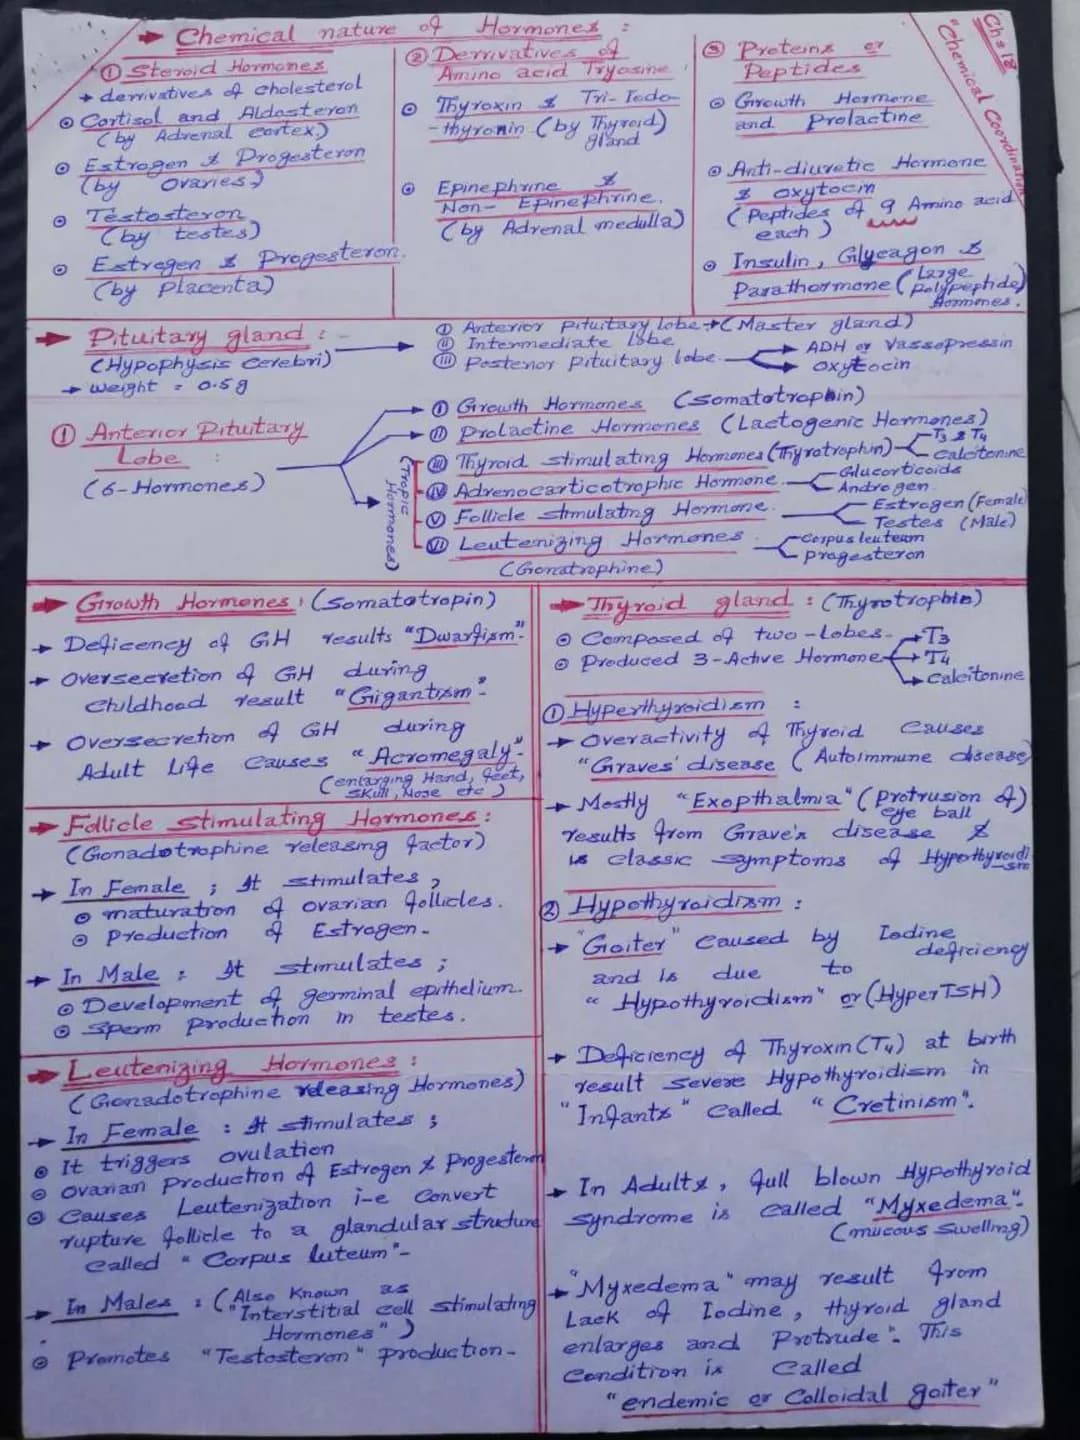 → Chemical nature of Hormones :
Ch#18
"Chemical Coordination
① Steroid Hormones
→ derrivatives of cholesterol
⊙ Cortisol and Aldosteron
(by Adrenal cortex)
⊙ Estrogen & Progesteron
(by ovaries)
⊙ Testosteron
(by testes)
⊙ Estregen & Progesteron.
(by Placenta)
② Derrivatives of
Amino acid Tryosine
⊙ Thyroxin & Tri-Iodo-
-thyronin (by Thyroid)
gland
⊙ Epinephrine &
Non-Epinephrine.
(by Adrenal medulla)
③ Proteins or
Peptides
⊙ Growth Hormone
and Prolactine
⊙ Anti-diuretic Hormone
& oxytocin
(Peptides of 9 Amino acid
each)
⊙ Insulin, Glycagon &
Parathormone (Large
polypeptide)
Hormones.
→ Pituitary gland :
(Hypophysis cerebri)
→ weight = 0.5g
① Anterior pituitary lobe → (Master gland)
② Intermediate lobe
③ Posterior pituitary lobe.
ADH or Vassopressin
oxytocin
① Anterior Pituitary
Lobe :
(6-Hormones)
Ⓘ Growth Hormones (Somatotrophin)
Ⓘⓘ Prolactine Hormones (Lactogenic Hormones)
(Tropic
Hormones)
ⓘⓘⓘ Thyroid stimulating Hormones (Thyrotrophin)
T3 & T4
Calcitonine
ⓘⓥ Adrenocarticotrophic Hormone.
Glucorticoids
Androgen
Ⓥ Follicle stimulatng Hormone.
Estrogen (Female
Testes (Male)
Ⓥⓘ Leutenizing Hormones
(Gonatrophine)
Corpus leuteam
progesteron
→ Growth Hormones : (Somatotropin)
→ Deficency of GH results "Dwarfism".
→ Oversecretion of GH during
childhood result "Gigantism".
→ Oversecretion of GH during
Adult Life causes "Acromegaly".
(enlarging Hand, feet,
skull, Nose etc)
→ Follicle stimulating Hormones :
(Gonadotrophine releasing factor)
→ In Female ; It stimulates ,
⊙ maturation of ovarian follicles.
⊙ production of Estrogen-
→ In Male : It stimulates ;
⊙ Development of germinal epithelium.
⊙ Sperm Production in testes.
→ Leutenizing Hormones :
(Gonadotrophine releasing Hormones)
→ In Female : It stimulates ;
⊙ It triggers ovulation
⊙ ovarian Production of Estrogen & Progesteron
⊙ Causes Leutenization i-e Convert
rupture follicle to a glandular structure
called "Corpus luteum"-
→ In Males : (Also Known as
"Interstitial cell stimulating
Hormones")
⊙ Promotes "Testosteron" production-
→ Thyroid gland : (Thyrotrophin)
⊙ Composed of two-lobes.
⊙ Produced 3-Active Hormone
T3
T4
Calcitonine
① Hyperthyroidism :
→ Overactivity of Thyroid Causes
"Graves' disease (Autoimmune disease)
→ Mostly "Exopthalmia" (Protrusion of)
eye ball
results from Grave's disease &
is classic symptoms of Hyperthyroidi
sm
② Hypothyroidism :
→ "Goiter" caused by Iodine
deficiency
and is due to
"Hypothyroidism" or (HyperTSH)
→ Deficiency of Thyroxin (T4) at birth
result severe Hypothyroidism in
"Infants" called "Cretinism".
→ In Adults, full blown Hypothyroid
syndrome is called "Myxedema".
(mucous swelling)
→ "Myxedema" may result from
Lack of Iodine, thyroid gland
enlarges and Protrude". This
condition is called
"endemic or Colloidal goiter"